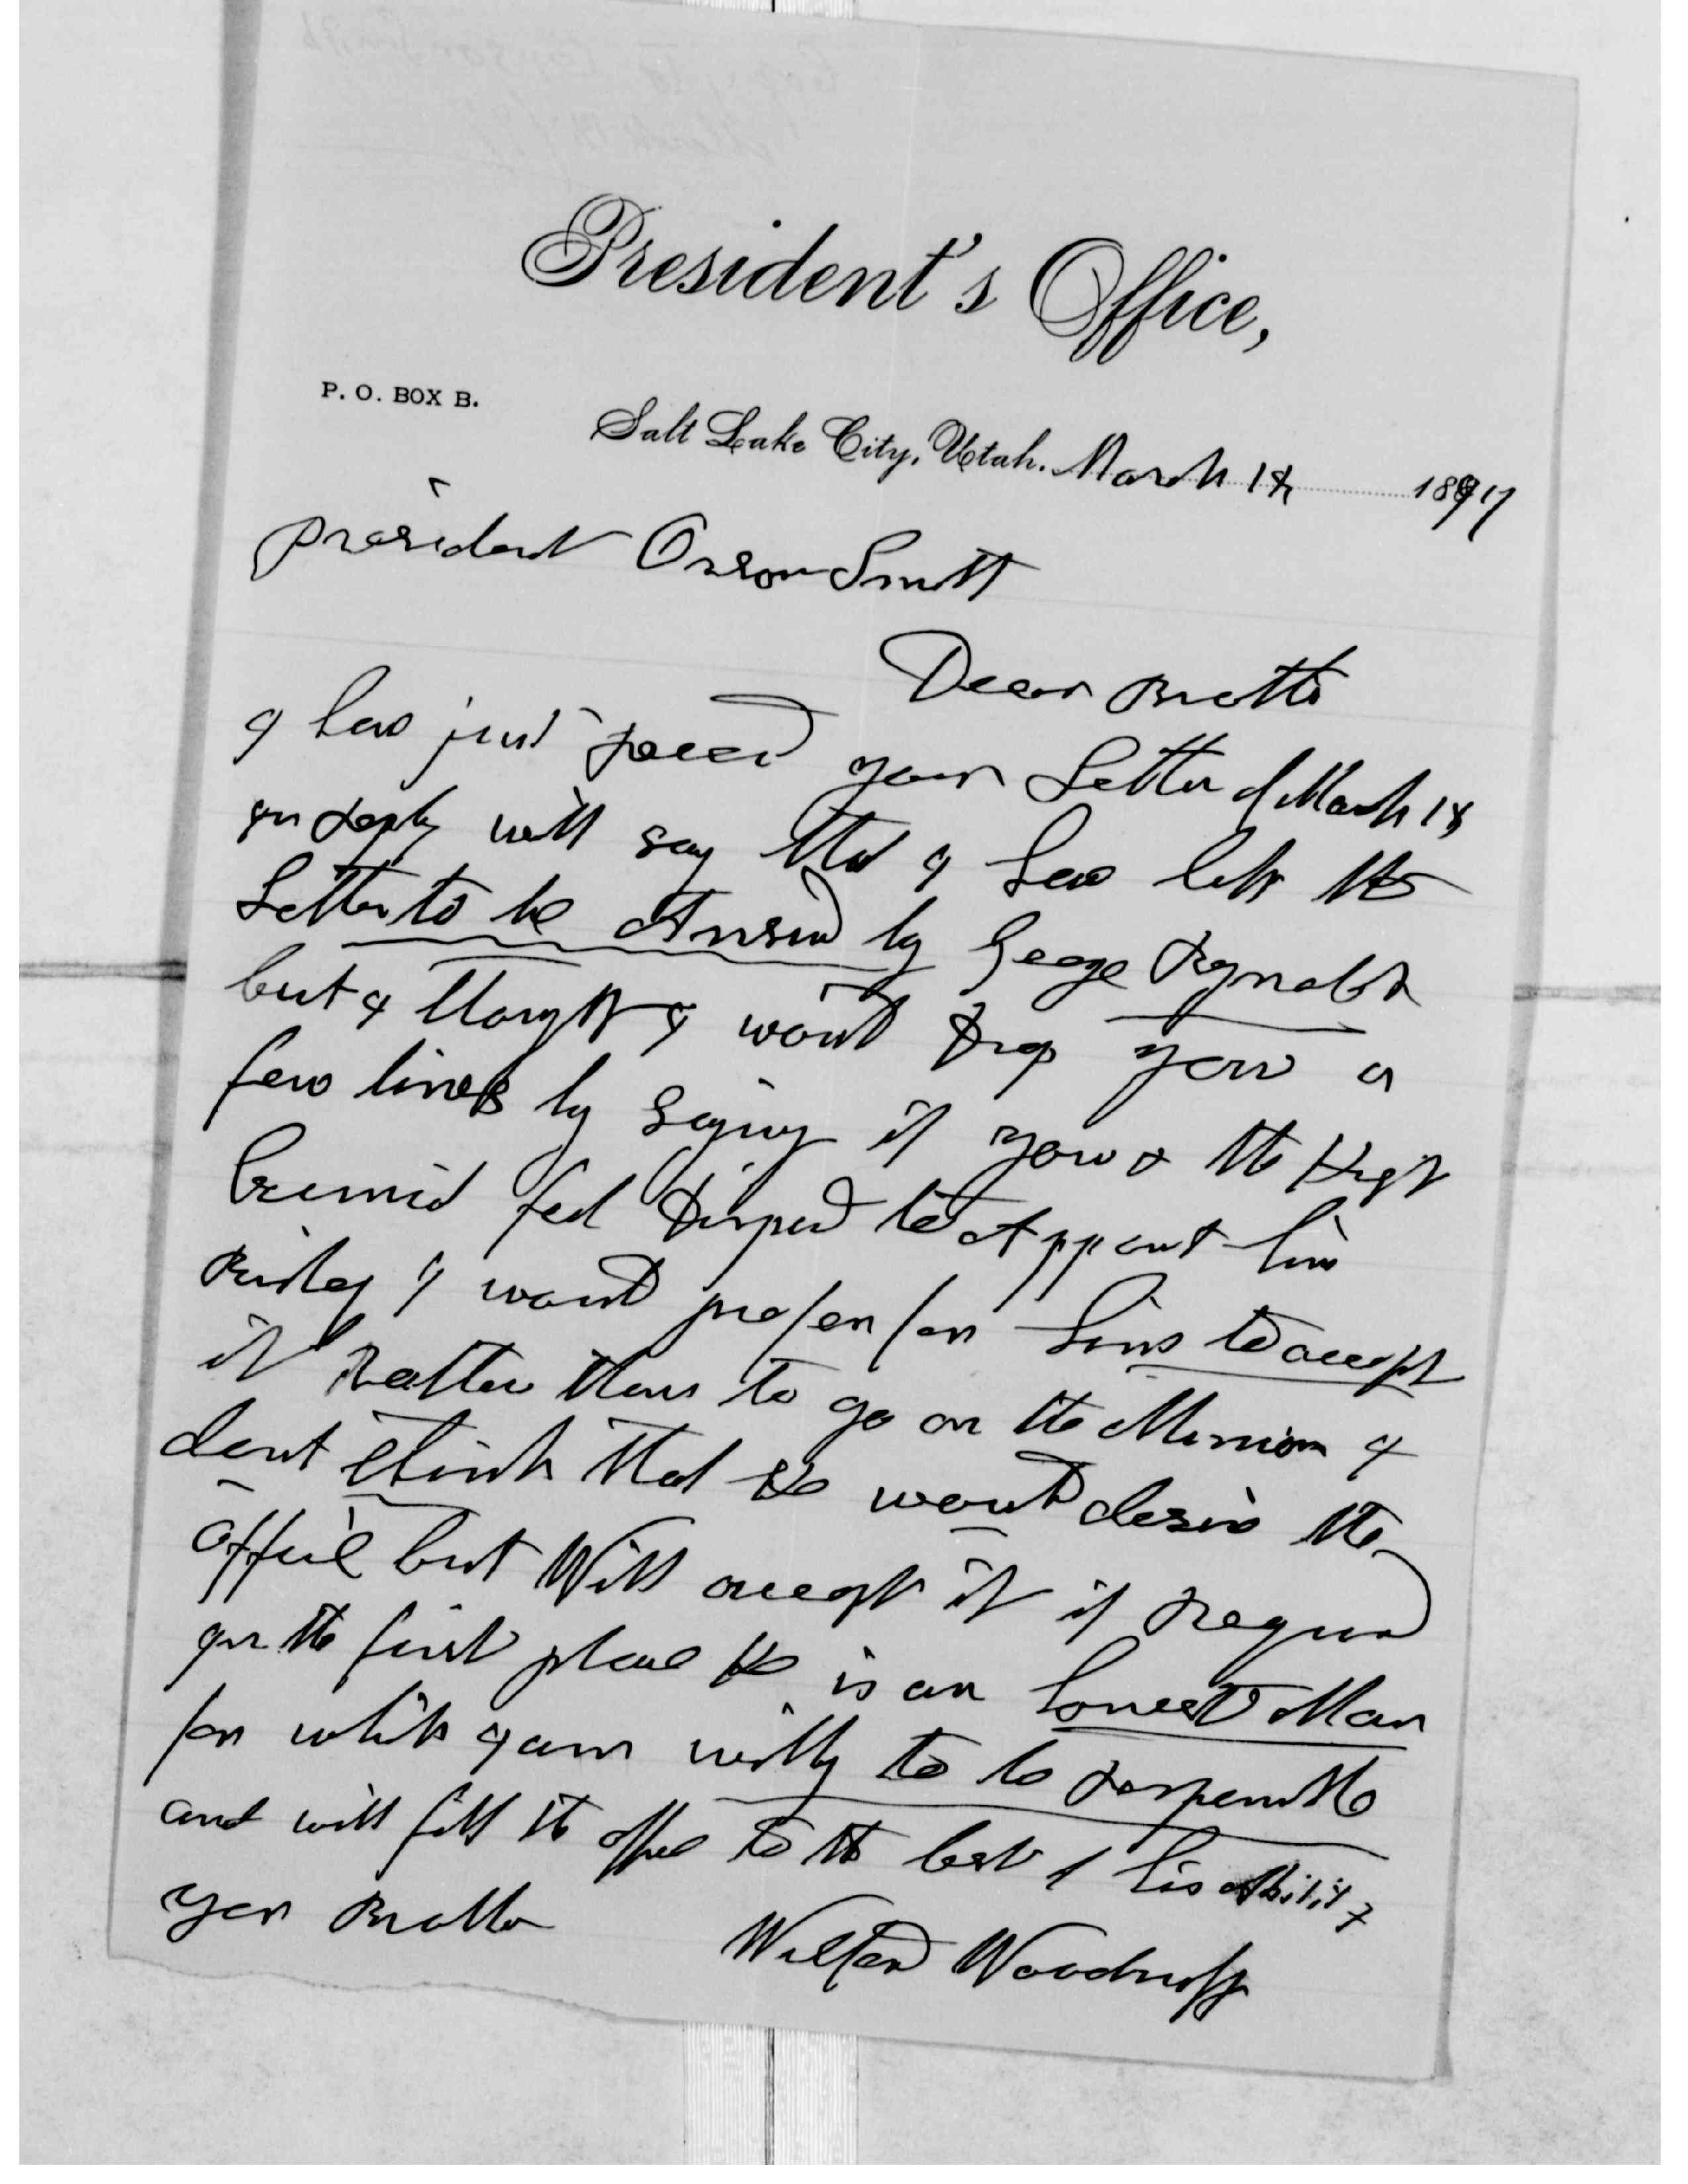 President's Office,
P. O. BOX B.
Salt Lake City, Utah. March 18 1897
President Orson Smith
Dear Brother
I have just recd your Letter of March 18
In reply will say that I have left the
Letter to be Answerd by George Reynolds
but I thought I would drop you a
few lines by saying if you & the High
Council feel disposed to Appoint him
Bishop I would prefer for him to accept
it Rather than to go on the Mission I
dont think that He would desire the
office but Will accept it if required
In the first place He is an honest Man
for which I am willing to be responsible
and will fill the office to the best of his Ability
Your Brother
Wilford Woodruff